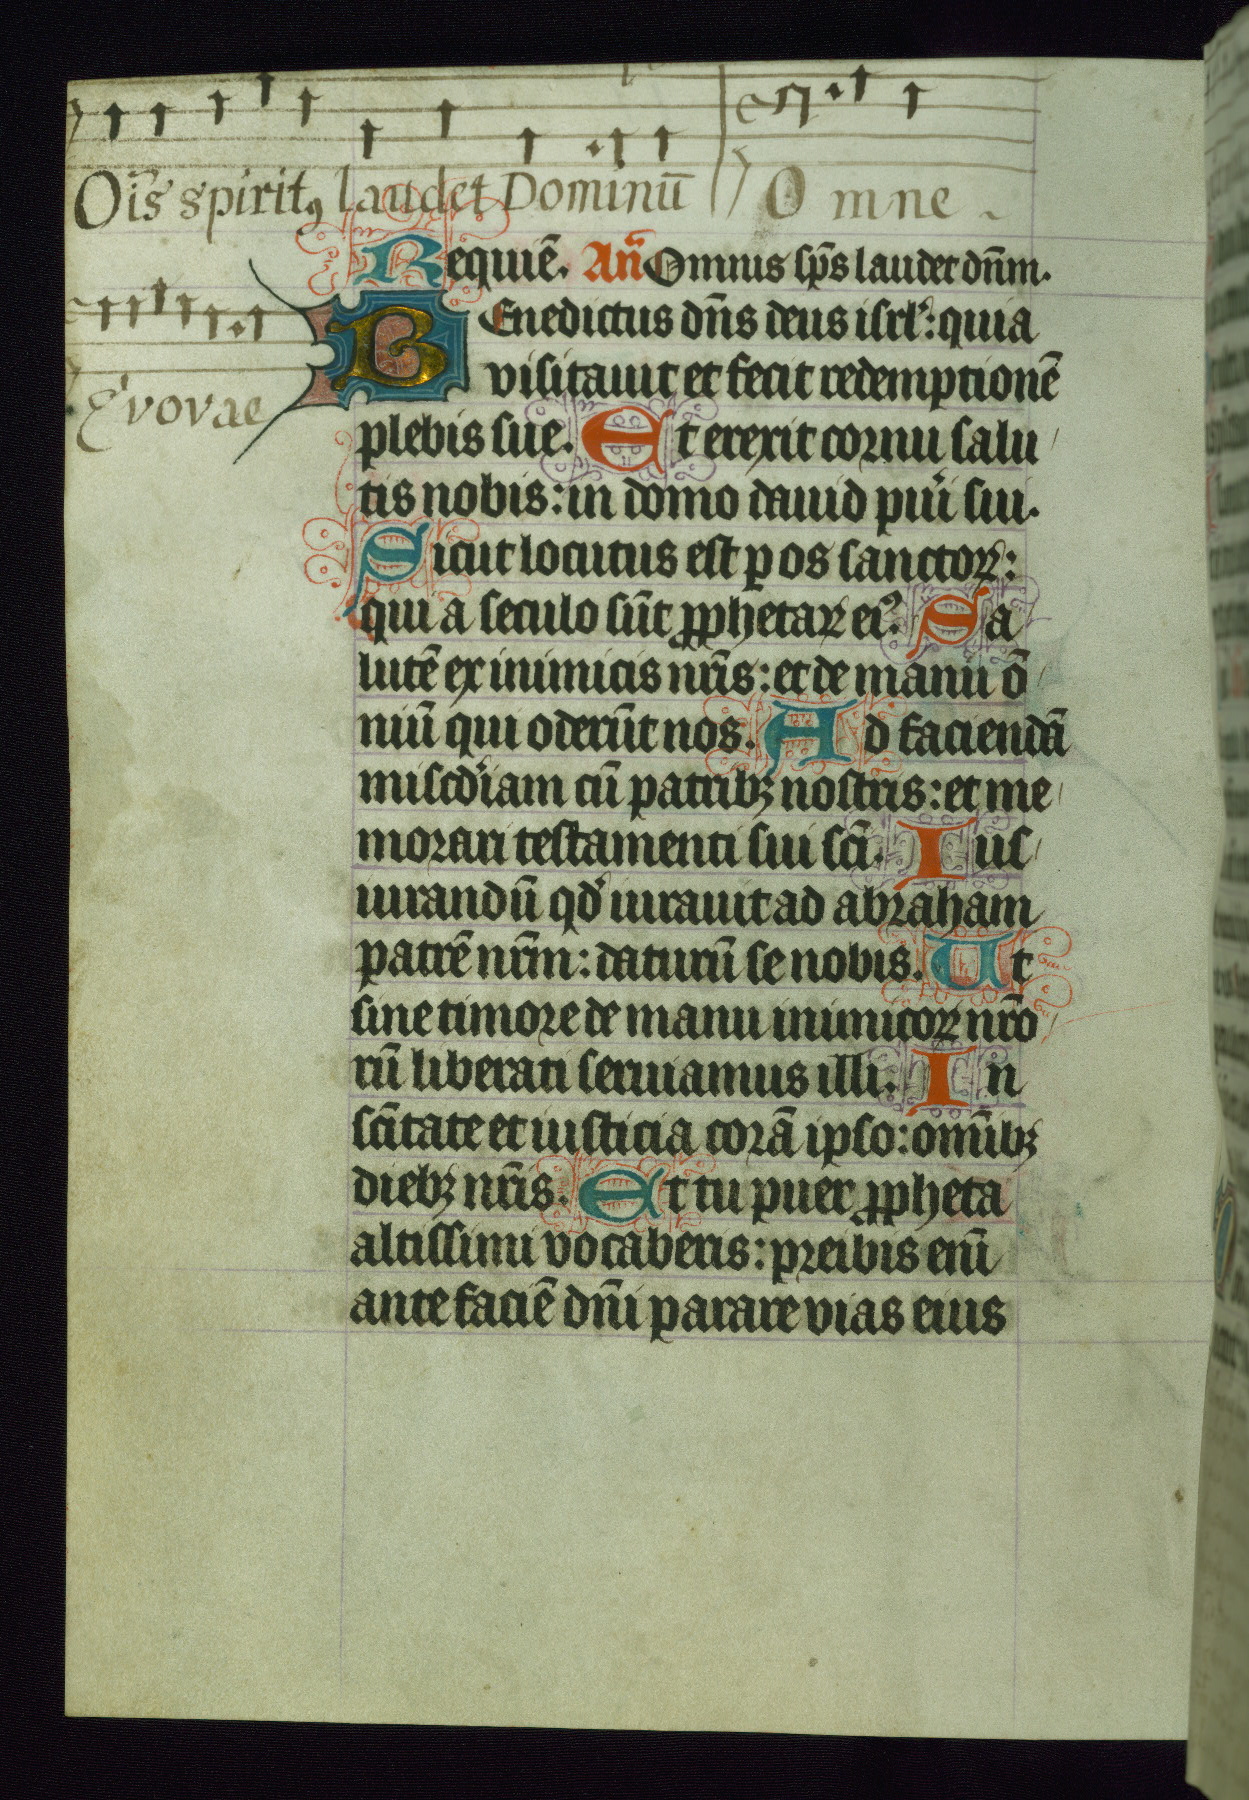 Oi̅s spiritꝯ laudet Dominu̅ Omne
Requie̅. An̅ Omnis sp̅s laudet dn̅m.
Evovae
Benedictus dn̅s deus isrl̅: quia
visitauit et fecit redemptione̅
plebis sue. Et erexit cornu salu
tis nobis: in domo dauid pu̅i sui.
Sicut locutus est ꝑ os sanctoꝝ:
qui a seculo su̅t ꝓphetaꝝ ei᾽. Sa
lute̅ ex inimicis nr̅is: et de manu o̅
niu̅ qui oderu̅t nos. Ad faciendā
miscd̅iam cu̅ patribꝫ nostris: et me
morari testamenti sui sc̅i. Ius
iurandu̅ qd̅ iurauit ad abraham
patre̅ nr̅m: daturu̅ se nobis. Ut
sine timore de manu inimicoꝝ nr̅o
ru̅ liberati seruiamus illi. In
sc̅itate et iusticia corā ipso: omi̅bꝫ
diebꝫ nr̅is. Et tu puer ꝓpheta
altissimi vocaberis: preibis eni̅
ante facie̅ dn̅i parare vias eius